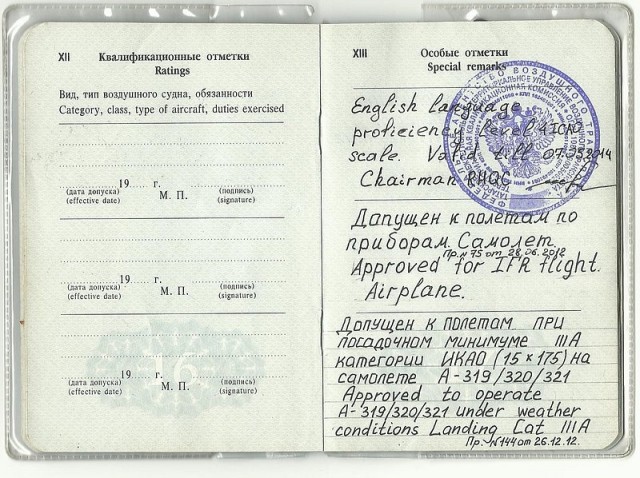 XII Квалификационные отметки
Ratings
Вид, тип воздушного судна, обязанности
Category, class, type of aircraft, duties exercised
19 г.
(дата допуска) М. П. (подпись)
(effective date) (signature)
19 г.
(дата допуска) М. П. (подпись)
(effective date) (signature)
19 г.
(дата допуска) М. П. (подпись)
(effective date) (signature)
16
XIII Особые отметки
Special remarks
English language
proficiency level 4 ICAO
scale. Valid till 07.03.2014
Chairman RHQC
Допущен к полетам по
приборам. Самолет.
Пр.№75 от 28.06.2012
Approved for IFR flight.
Airplane.
Допущен к полетам при
посадочном минимуме IIIA
категории ИКАО (15×175) на
самолете А-319/320/321
Approved to operate
A-319/320/321 under weather
conditions Landing Cat IIIA
Пр.№144 от 26.12.12.